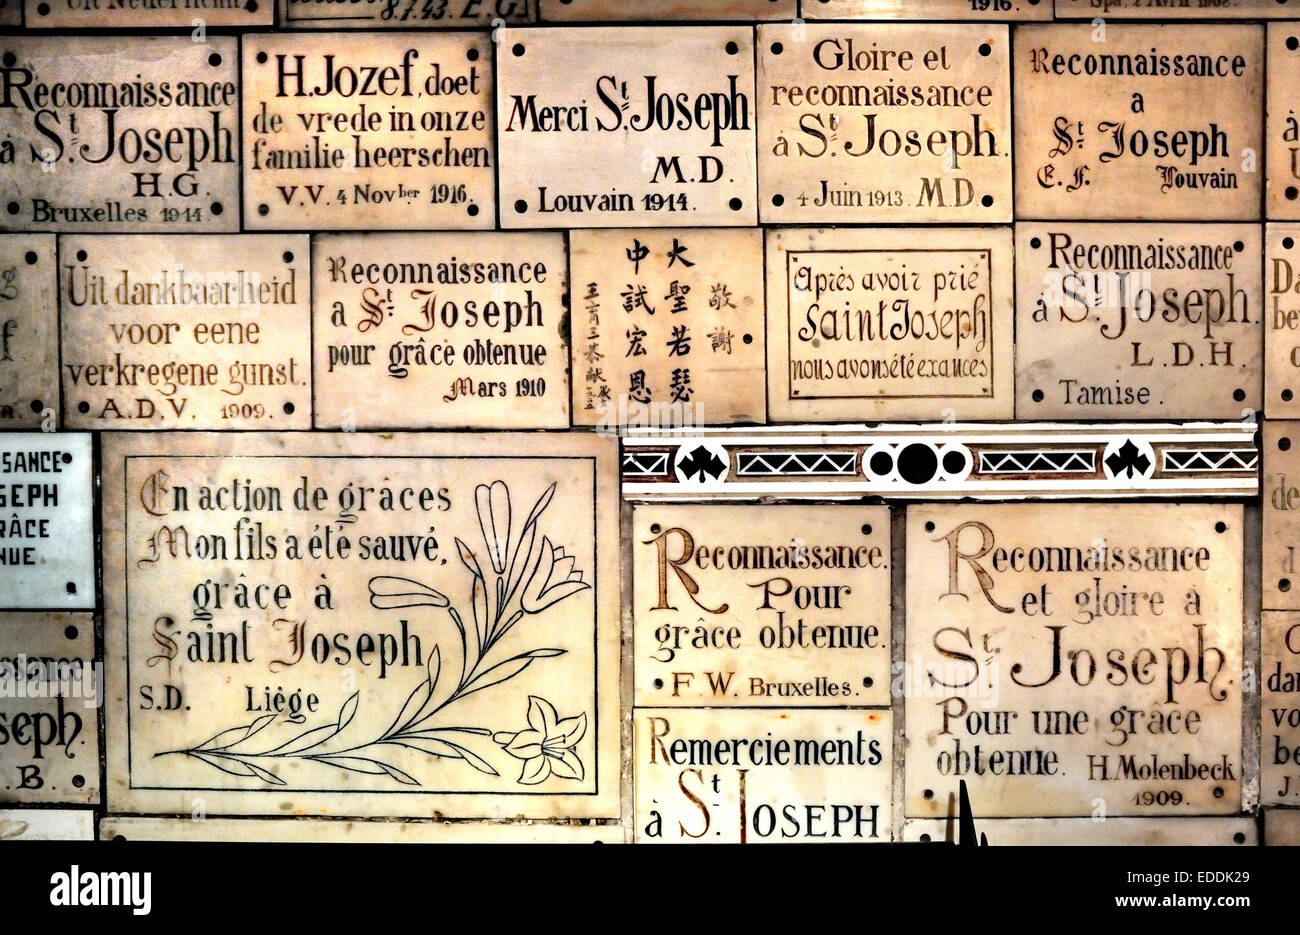 8.7.43. E.G.
1916.
Spa, 2 Avril 1908.
Reconnaissance
à St. Joseph
H.G.
Bruxelles 1914.
H. Jozef, doet
de vrede in onze
familie heerschen
V.V. 4 Novber 1916.
Merci St. Joseph
M.D.
Louvain 1914.
Gloire et
reconnaissance
à St. Joseph.
4 Juin 1913. M.D.
Reconnaissance
a
St Joseph
E. F. Louvain
Uit dankbaarheid
voor eene
verkregene gunst.
A.D.V. 1909.
Reconnaissance
a St Joseph
pour grâce obtenue
Mars 1910
敬謝
大聖若瑟
中試宏恩
Après avoir prié
Saint Joseph
nous avons été exaucés
Reconnaissance
à St. Joseph.
L.D.H.
Tamise.
SSANCE
OSEPH
RÂCE
NUE
En action de grâces
Mon fils a été sauvé,
grâce à
Saint Joseph
S.D. Liège
Reconnaissance.
Pour
grâce obtenue.
F.W. Bruxelles.
Reconnaissance
et gloire à
St. Joseph.
Pour une grâce
obtenue. H. Molenbeck
1909.
issance
oseph.
.B.
Remerciements
à St Joseph
a
alamy stock photo
alamy
Image ID: EDDK29
www.alamy.com